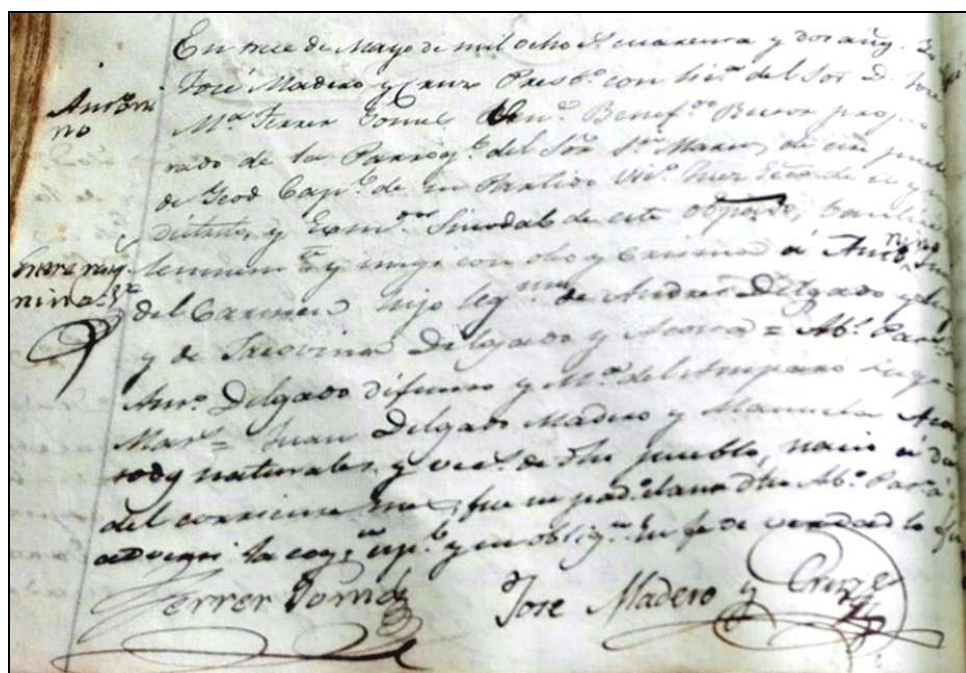 Antoni
no
En trece de Mayo de mil ocho s. cuarenta y dos añs. Yo
José Madero y Cruz Presb.º con lic.ª del Sor. D. José
M.ª Ferrer Gomes Ven.e Benef.do Rector propio
rado de la Parroq.l del Sor. Sn. Marcos de
de Ycod Cap.l de su Partido Vic.º Juez Ecco. de el y su
distrito, y Exam.or Sinodal de este obispado, bautisé
solemnem.te y ungi con oleo y Crisma á Anto.nino
del Carmen hijo leg.mo de Andres Delgado y Lugo
y de Delgado y Acosta = Ab.s Pat.s
Ant.º Delgado difunto y M.ª del Amparo Lugo =
Mat.s = Juan Delgado Madero y Manuela Acos
todos naturales y vec.s de dho pueblo, nació á dos
del corriente mes, fue su pad.º la una dha Ab.ª Pat.ª
advertí la cog.n esp.l y su oblig.n En fe de verdad lo
Ferrer Gomes José Madero y Cruz